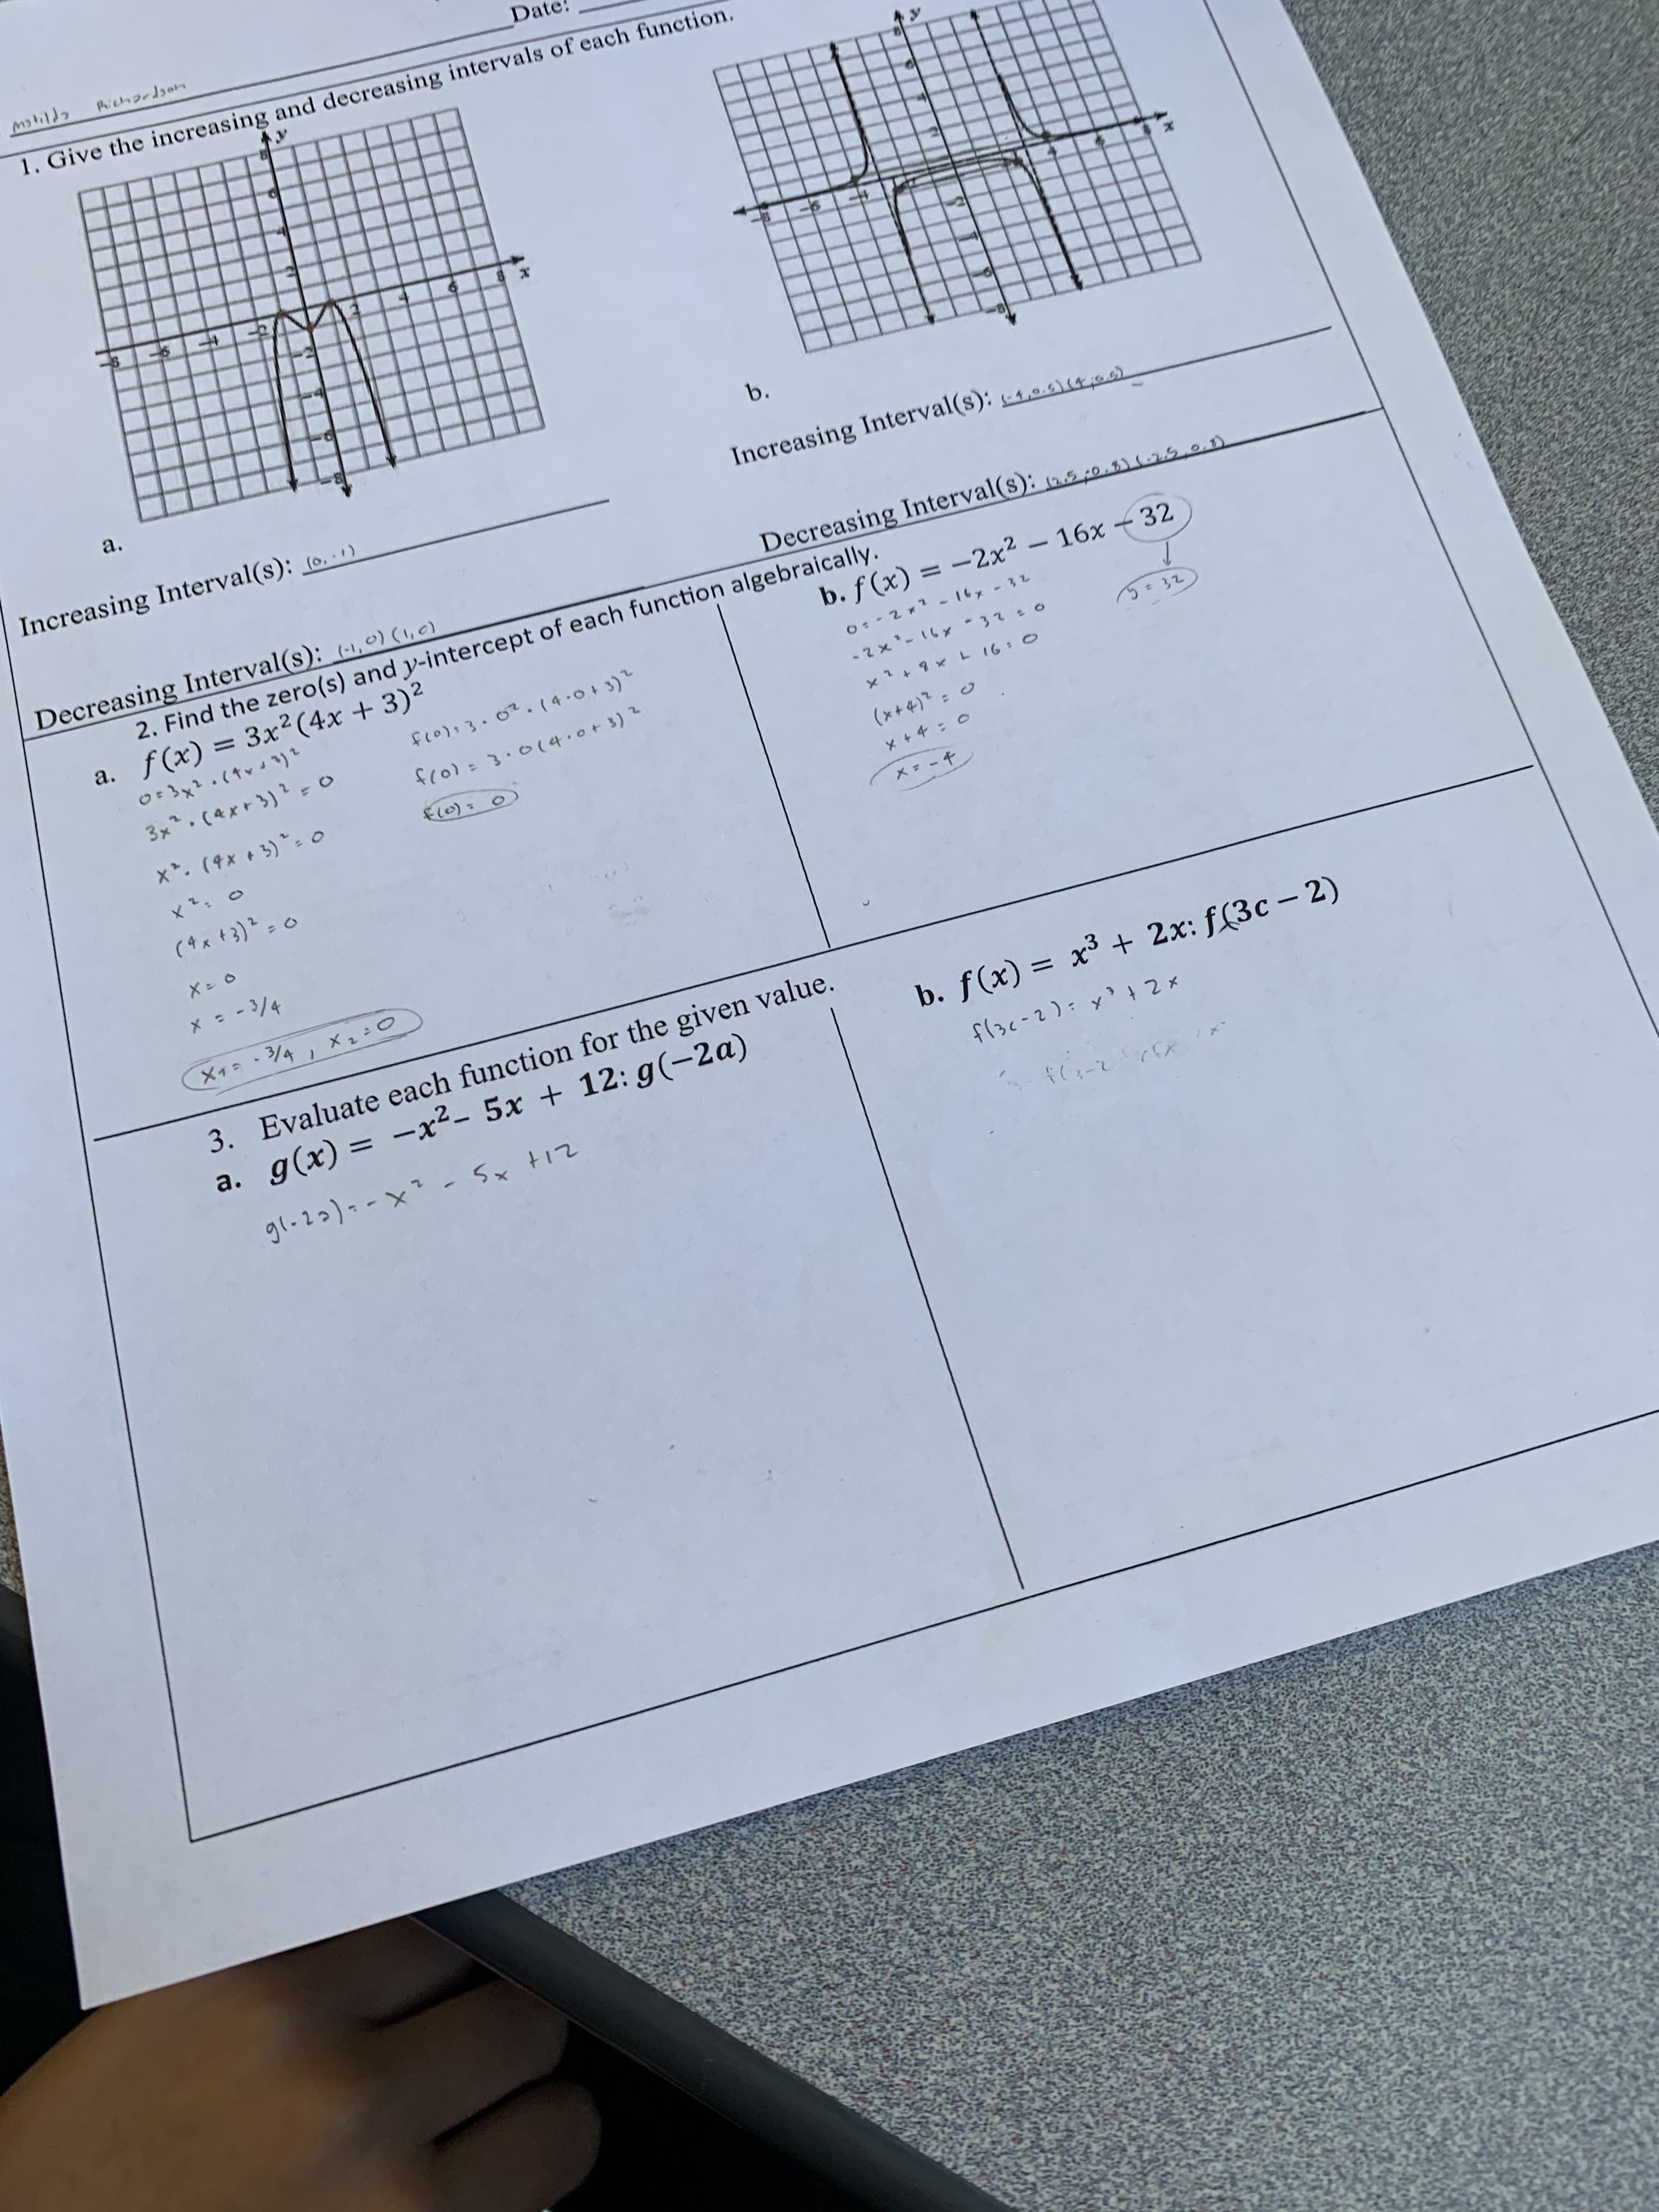 Date:
Richardson
1. Give the increasing and decreasing intervals of each function.
y
8
6
4
2
-8 -6 -4 -2 2 4 6 8 x
-2
-4
-6
-8
a.
Increasing Interval(s): (0, -1)
Decreasing Interval(s): (-1, 0) (1, 0)
y
8
6
4
2
-8 -6 -4 4 6 8 x
-2
-4
-6
-8
b.
Increasing Interval(s): (-4,0.5) (4,-0.5)
Decreasing Interval(s): (2.5,-0.8) (-2.5, 0.8)
2. Find the zero(s) and y-intercept of each function algebraically.
a. f(x) = 3x²(4x + 3)²
0=3x²·(4x+3)²
3x²·(4x+3)² = 0
x²·(4x+3)² = 0
x² = 0
(4x+3)² = 0
x = 0
x = -3/4
x₁ = -3/4, x₂ = 0
f(0) = 3·0²·(4·0+3)²
f(0) = 3·0(4·0+3)²
f(0) = 0
b. f(x) = −2x² − 16x − 32
0 = -2x² - 16x - 32
-2x² - 16x - 32 = 0
x² + 8x + 16 = 0
(x+4)² = 0
x+4 = 0
x = -4
y = 32
3. Evaluate each function for the given value.
a. g(x) = −x²− 5x + 12: g(−2a)
g(-2a) = -x² - 5x +12
b. f(x) = x³ + 2x: f(3c − 2)
f(3c-2) = x³ + 2x